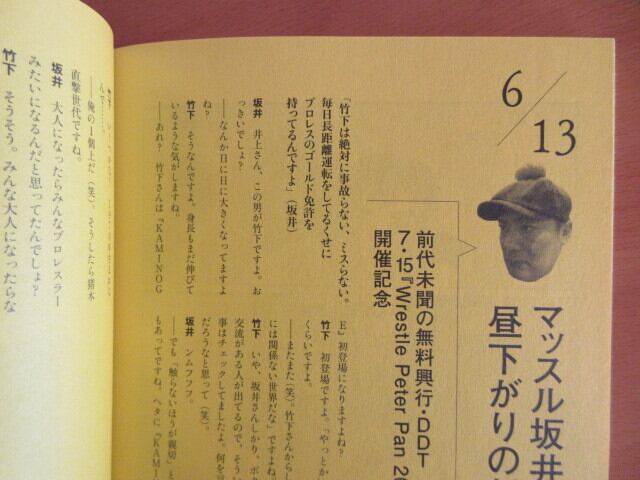 6/13
マッスル坂井
昼下がりの
前代未聞の無料興行・DDT
7・15『Wrestle Peter Pan 20
開催記念
「竹下は絶対に事故らない、ミスらない。
毎日長距離運転をしてるくせに
プロレスのゴールド免許を
持ってるんですよ」(坂井)
坂井 井上さん、この男が竹下ですよ。お
っきいでしょ?
――なんか日に日に大きくなってますよ
ね?
竹下 そうなんですよ。身長もまだ伸びて
いるような気がしますね。
――あれ? 竹下さんは『KAMINOG
E』初登場になりますよね?
竹下 初登場ですよ。「やっとか
くらいですよ。
――またまた(笑)。竹下さんからし
には関係ない世界だな」ですよね
竹下 いや、坂井さんしかり、ボ
交流がある人が出てるので、そうい
事はチェックしてましたよ。何を
だろうなと思って(笑)。
坂井 ンムフフフ。
――でも「触らないほうが親切」と
もあってですね。ヘタに『KAMIN
んで……。
――俺の1個上だ(笑)。そうしたら猪木
直撃世代ですね。
坂井 大人になったらみんなプロレスラー
みたいになるんだと思ってたんでしょ?
竹下 そうそう。みんな大人になったらな